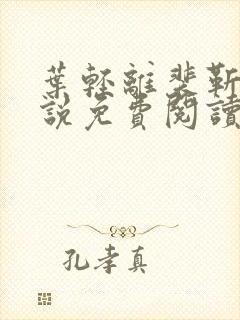 葉輕離裴靳
說免費閱讀
孔孝真